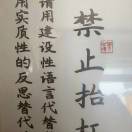 禁止抬杠
请用建设性语言代替
用实质性的反思替代